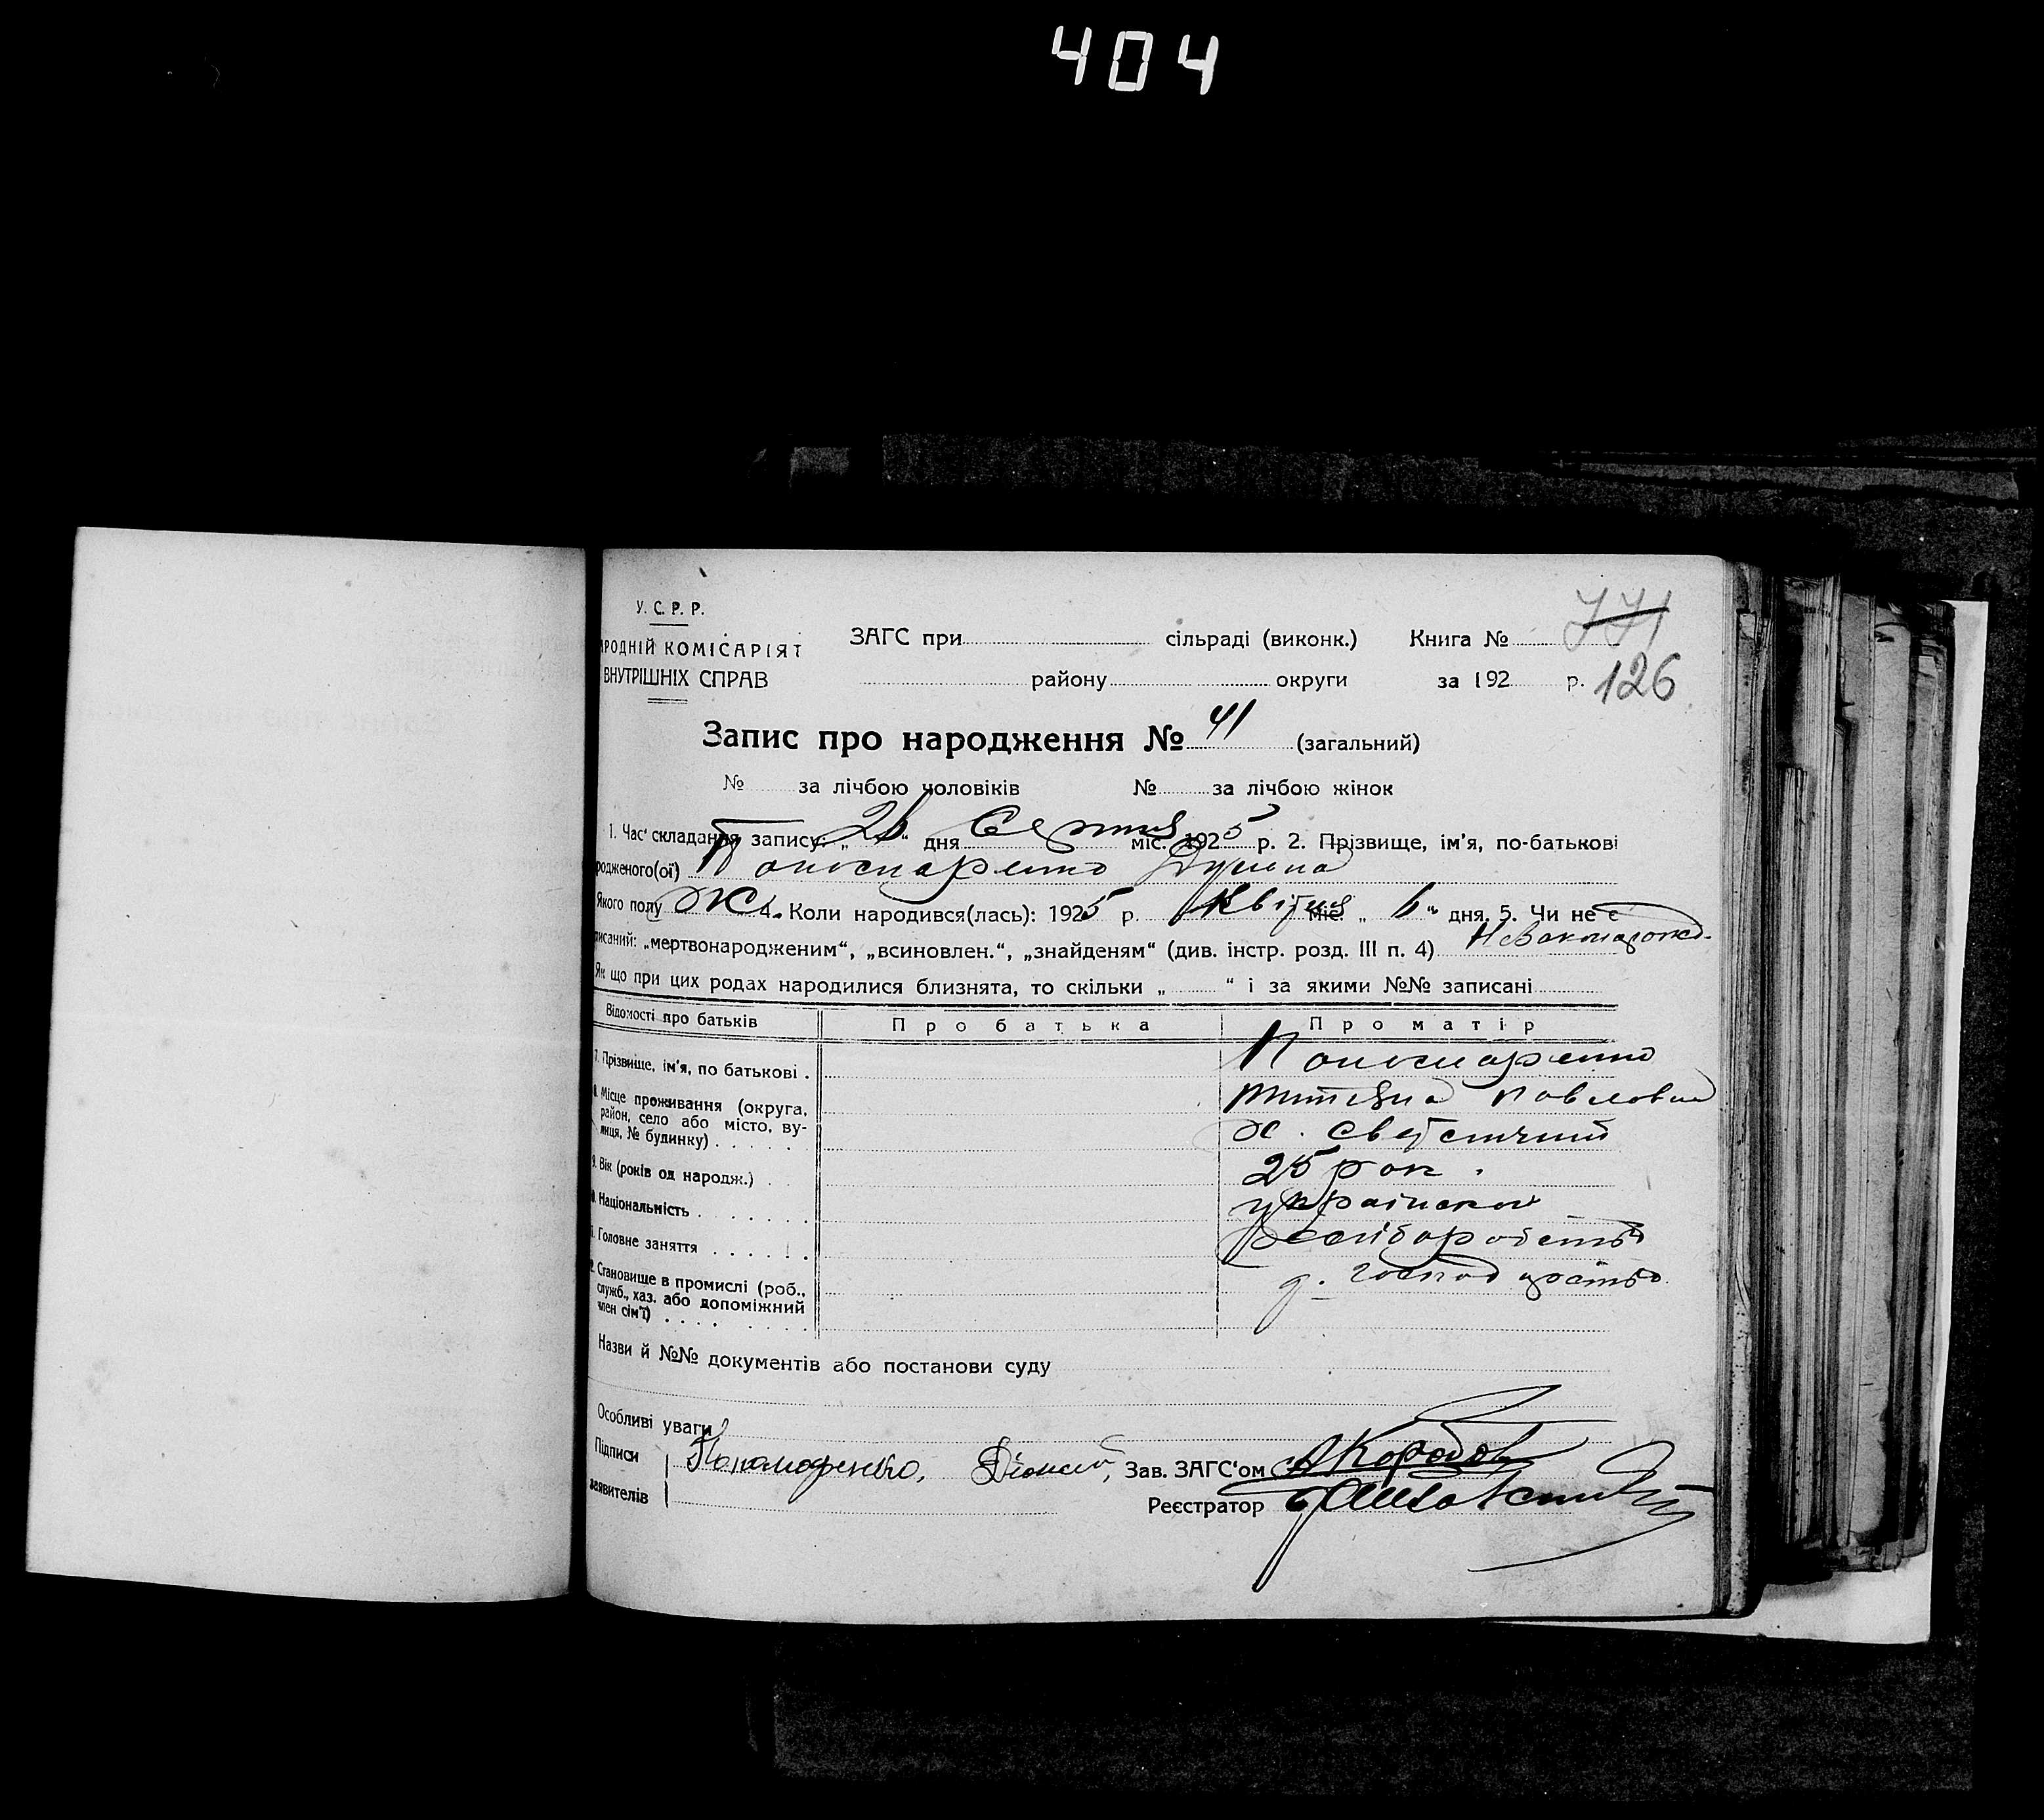 404
771
126
У.С.Р.Р.
РОДНІЙ КОМІСАРІЯТ
ВНУТРІШНІХ СПРАВ
ЗАГС при сільраді (виконк.) Книга №
району округи за 192 р.
Запис про народження № 41 (загальний)
№ за лічбою чоловіків № за лічбою жінок
1. Час складання запису: „26“ дня Серпня міс. 1925 р. 2. Прізвище, ім'я, по-батькові
родженого(ої) Пономаренко
Якого полу Ж. 4. Коли народився(лась): 1925 р. Квітня міс. „6“ дня. 5. Чи не є
писаний: „мертвонародженим“, „всиновлен.“, „знайденям“ (див. інстр. розд. III п. 4)
Як що при цих родах народилися близнята, то скільки „ “ і за якими №№ записані
Відомості про батьків Про батька Про матір
7. Прізвище, ім'я, по батькові . Пономаренко
8. Місце проживання (округа, район, село або місто, вулиця, № будинку) . . . . . Павловна
х.
9. Вік (років од народж.) . . 25 рок.
10. Національність . . . . . . . українской
Головне заняття . . . . . .
Становище в промислі (роб.,
служб., хаз. або допоміжний
член сім'ї) . . . . . . . .
Назви й №№ документів або постанови суду
Особливі уваги
Підписи Пономаренко, Зав. ЗАГС'ом
заявителів Реєстратор